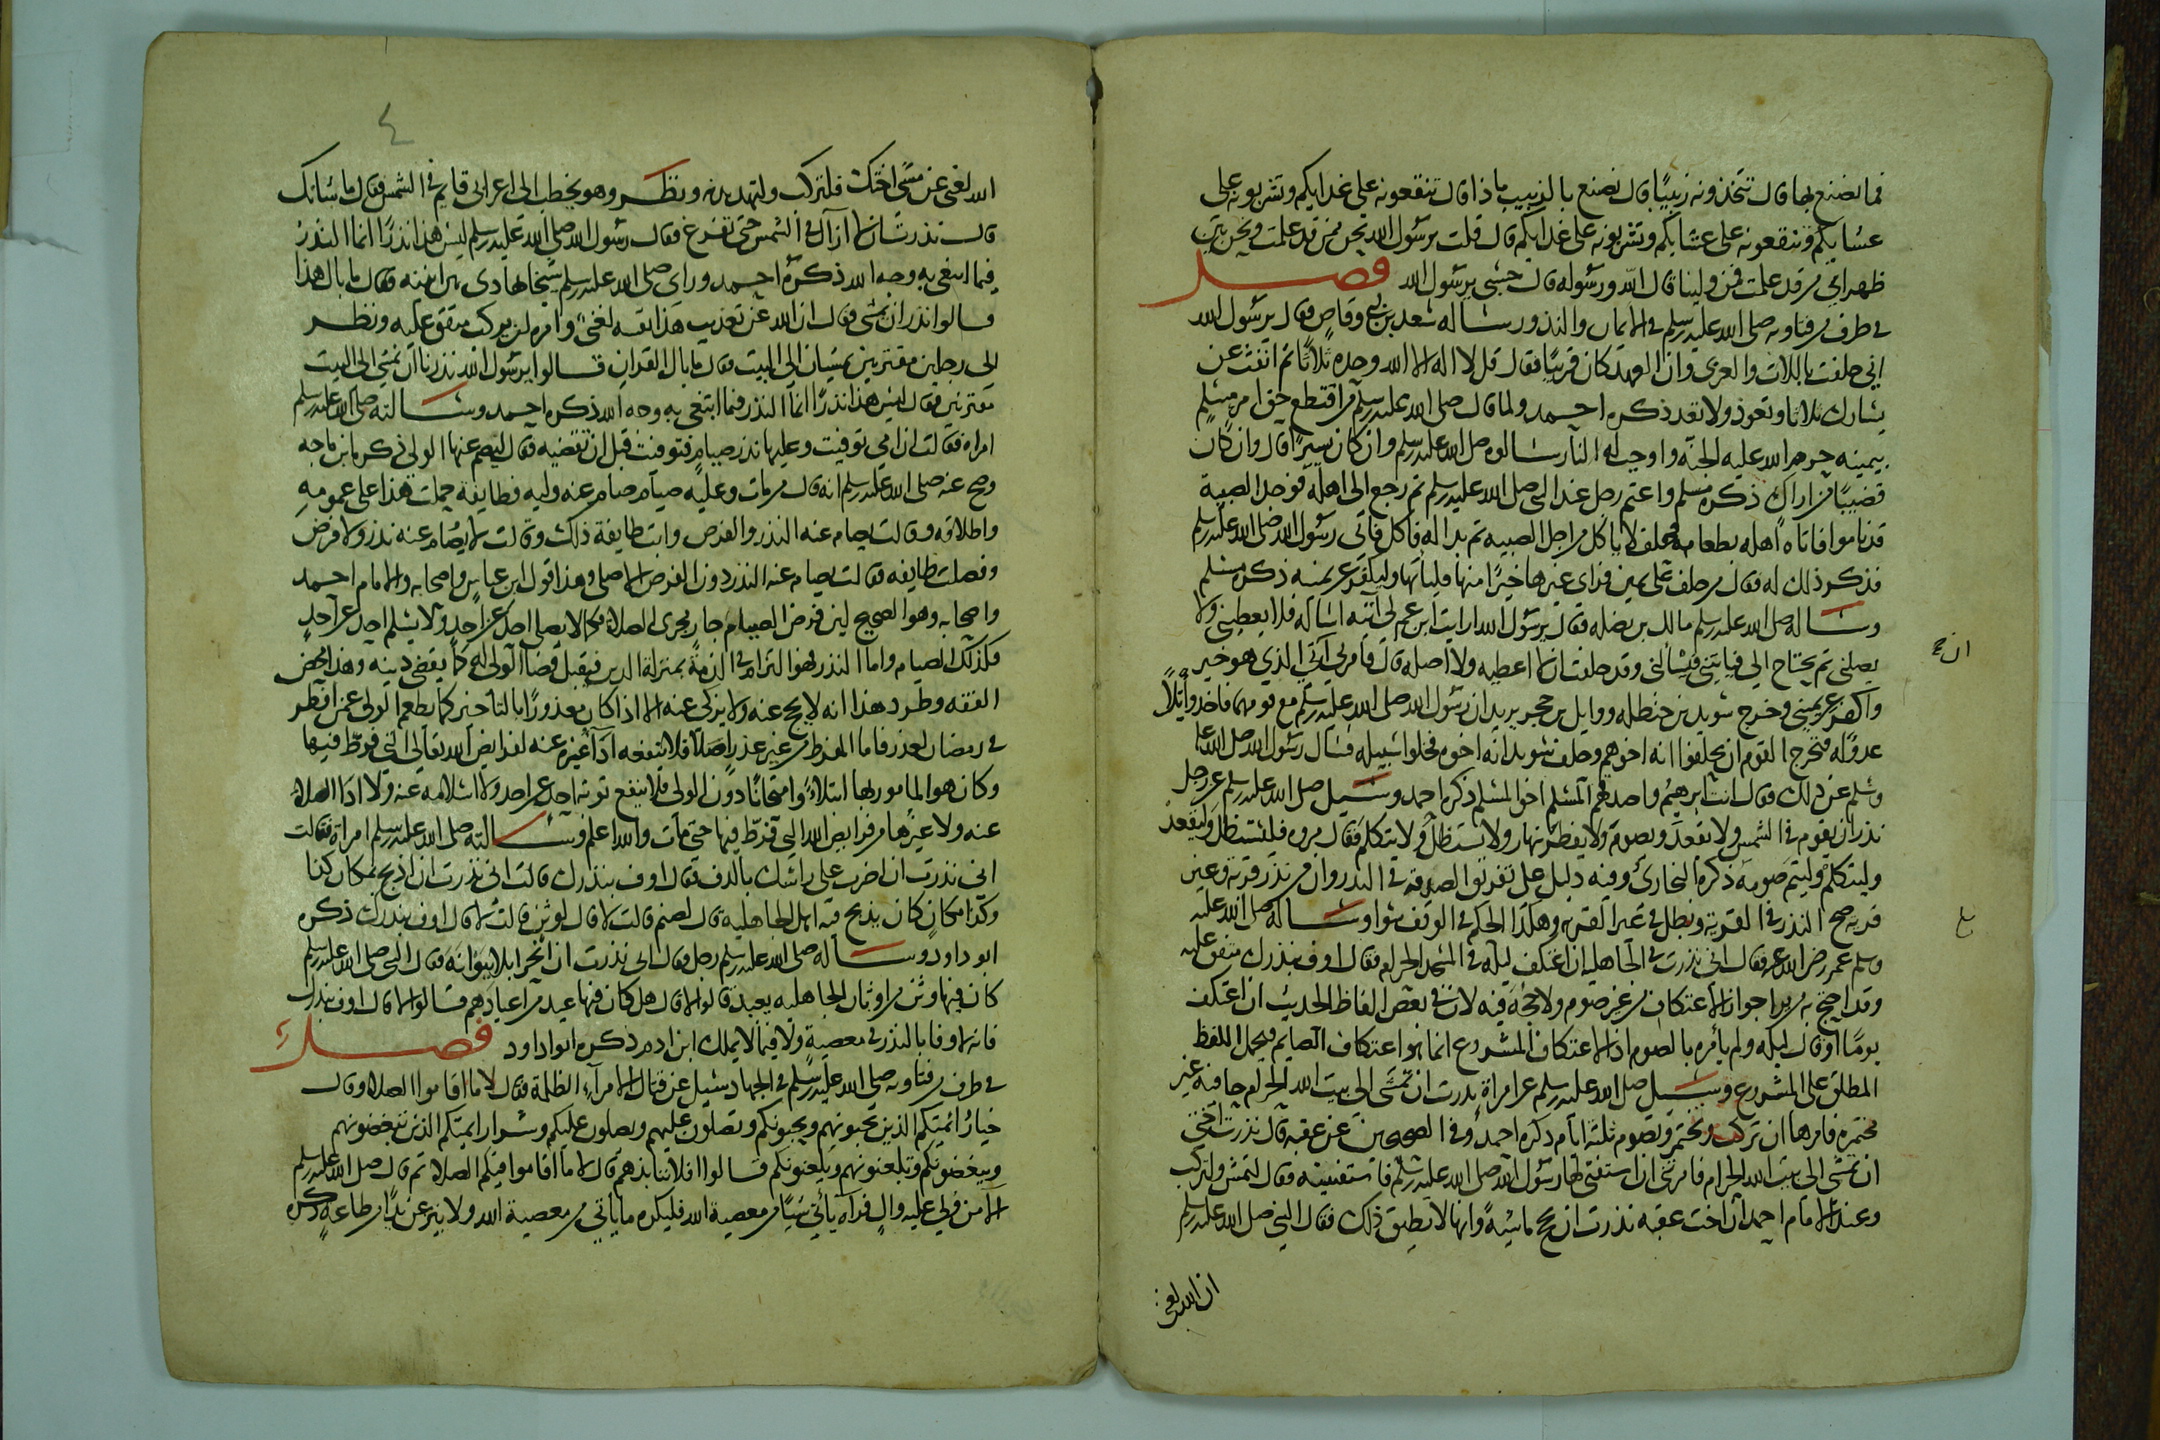 فما نصنع بها قال تتخذونه زبيبًا قال نصنع بالزبيب ماذا قال تنقعونه على غدايكم وتشربونه على
عشايكم وتنقعونه على عشايكم وتشربونه على غدايكم قال قلت يرسول الله نحن ممن قد علمت ونحن بين
ظهراني من قد علمت فمن ولينا قال الله ورسوله قال حسبي يرسول الله فصل
في طرف من فتاويه صلى الله عليه وسلم في الايمان والنذور سأله سعد بن ابي وقاص فقال يرسول الله
اني حلفت باللات والعزى وان العهد كان قريبًا فقال قل لا اله الا الله وحده ثلاثًا ثم انفث عن
يسارك ثلاثا وتعوذ ولا تعد ذكره احمد ولما قال صلى الله عليه وسلم من اقتطع حق امرء مسلم
بيمينه حرم الله عليه الجنة واوجب له النار سالوه صلى الله عليه وسلم وان كان يسيرًا قال وان كان
قضيبًا من اراك ذكره مسلم واعتم رجل عند النبي صلى الله عليه وسلم ثم رجع الى اهله فوجد الصبية
قد ناموا فاتاه اهله بطعامه فحلف لا ياكل من اجل الصبيه ثم بدا له فاكل فاتى رسول الله صلى الله عليه وسلم
فذكر ذلك له فقال من حلف على يمين فراى غيرها خيرًا منها فلياتها وليكفر عن يمينه ذكره مسلم
وساله صلى الله عليه وسلم مالك بن نضله فقال يرسول الله ارايت ابن عم لي آتيه اساله فلا يعطيني ولا
يصلني ثم يحتاج الي فياتيني فيسالني وقد حلفت ان لا اعطيه ولا اصله قال فامرني آتي الذي هو خير
ان صح
واكفر عن يميني وخرج سويد بن حنظله ووايل بن حجر يريدان رسول الله صلى الله عليه وسلم مع قومهما فاخذ وايلاً
عدو له فتحرج القوم ان يحلفوا انه اخوهم وحلف سويد انه اخوه فخلوا سبيله فسال رسول الله صلى الله عليه
وسلم عن ذلك فقال انت ابرهم واصدقهم المسلم اخو المسلم ذكره احمد وسيل صلى الله عليه وسلم عن رجل
نذر ان يقوم في الشمس ولا يقعد ويصوم ولا يفطر بنهار ولا يستظل ولا يتكلم فقال مروه فليستظل وليقعد
وليتكلم وليتم صومه ذكره البخاري وفيه دليل على تفريق الصدقه في النذر وان من نذر قربة وغير
قربه صح النذر في القربة وبطل في غير القربه وهكذا الحكم في الوقف سوا وساله صلى الله عليه
وسلم عمر رضي الله عنه فقال اني نذرت في الجاهلية ان اعتكف ليله في المسجد الحرام فقال اوف بنذرك متفق عليه
وقد احتج به من يرا جواز الاعتكاف من غير صوم ولا حجة فيه لان في بعض الفاظ الحديث ان اعتكف
يومًا او قال ليله ولم يأمره بالصوم اذ الاعتكاف المشروع انما هو اعتكاف الصايم فيحمل اللفظ
المطلق على المشروع وسيل صلى الله عليه وسلم عن امراة نذرت ان تمشى الى بيت الله الحرام حافيه غير
مختمره فامرها ان تركب وتختمر وتصوم ثلثة ايام ذكره احمد وفي الصحيحين عن عقبه قال نذرت اختي
ان تمشى الى بيت الله الحرام فامرتني ان استفتى لها رسول الله صلى الله عليه وسلم فاستفتيته فقال لتمش ولتركب
وعند الامام احمد ان اخت عقبه نذرت ان تحج ماشيةً وانها لا تطيق ذلك فقال النبي صلى الله عليه وسلم
ان الله لغني
الله لغني عن مشى اختك فلتركب ولتهد بدنه ونظر وهو يخطب الى اعرابي قايم في الشمس فقال ما شانك
قال نذرت ان لا ازال في الشمس حتى تفرغ فقال رسول الله صلى الله عليه وسلم ليس هذا نذرًا انما النذر
فيما ابتغى به وجه الله ذكره احمد وراى صلى الله عليه وسلم شيخا يهادى بين ابنيه فقال ما بال هذا
قالوا نذر ان يمشي فقال ان الله عن تعذيب هذا نفسه لغني وامره ان يركب متفق عليه ونظر
الى رجلين مقترنين يمشيان الى البيت فقال ما بال القران قالوا يرسول الله نذرنا ان نمشي الى البيت
مقترنين فقال ليس هذا نذرًا انما النذر فيما ابتغى به وجه الله ذكره احمد وسالته صلى الله عليه وسلم
امراة فقالت ان امي توفيت وعليها نذر صيام فتوفيت قبل ان تقضيه فقال ليصم عنها الولي ذكره ابن ماجه
وصح عنه صلى الله عليه وسلم انه قال من مات وعليه صيام صام عنه وليه فطايفة حملت هذا على عمومه
واطلاقه وقالت يصام عنه النذر والفرض وابت طايفة ذلك وقالت لا يصام عنه نذر ولا فرض
وفصلت طايفه فقالت يصام عنه النذر دون الفرض الاصلي وهذا قول ابن عباس واصحابه والامام احمد
واصحابه وهو الصحيح لان فرض الصيام جار مجرى الصلاة فكما لا يصلي احد عن احد ولا يسلم احد عن احد
فكذلك الصيام واما النذر فهو التزام في الذمة بمنزلة الدين فيقبل قضآ الولي له كما يقضي دينه وهذا محض
الفقه وطرد هذا انه لا يحج عنه ولا يزكي عنه الا اذا كان معذورًا بالتاخير كما يطعم الولي عمن افطر
في رمضان لعذر فاما المفرط من غير عذر اصلا فلا ينفعه ادآ غيره عنه لفرايض الله تعالى التي فرط فيها
وكان هو المامور بها ابتلاءً وامتحانًا دون الولي فلا ينفع توبة احد عن احد ولا اسلامه عنه ولا اداء الصلاة
عنه ولا غيرها من فرايض الله التي فرط فيها حتى مات والله اعلم وسالته صلى الله عليه وسلم امراة فقالت
اني نذرت ان اضرب على راسك بالدف فقال اوف بنذرك قالت اني نذرت ان اذبح بمكان كذا
وكذا مكان كان يذبح فيه اهل الجاهليه قال لصنم قالت لا قال لوثن قالت لا قال اوف بنذرك ذكره
ابو داود وساله صلى الله عليه وسلم رجل فقال اني نذرت ان انحر ابلا ببوانه فقال النبي صلى الله عليه وسلم
كان فيها وثن من اوثان الجاهليه يعبد قالوا لا قال هل كان فيها عيد من اعيادهم قالوا لا قال اوف بنذرك
فانه لا وفا بالنذر في معصية ولا فيما لا يملك ابن ادم ذكره ابوداود فصل
في طرف من فتاويه صلى الله عليه وسلم في الجهاد سيل عن قتال الامرآء الظلمة فقال لا ما اقاموا الصلاة وقال
خيار ائمتكم الذين تحبونهم ويحبونكم وتصلون عليهم ويصلون عليكم وشرار ايمتكم الذين تبغضونهم
ويبغضونكم وتلعنونهم ويلعنونكم قالوا افلا ننابذهم قال لا ما اقاموا فيكم الصلاة ثم قال صلى الله عليه وسلم
الا من ولي عليه وال فرآه يأتي شيًا من معصية الله فليكره ما ياتي من معصية الله ولا ينزعن يدًا من طاعه ذكره